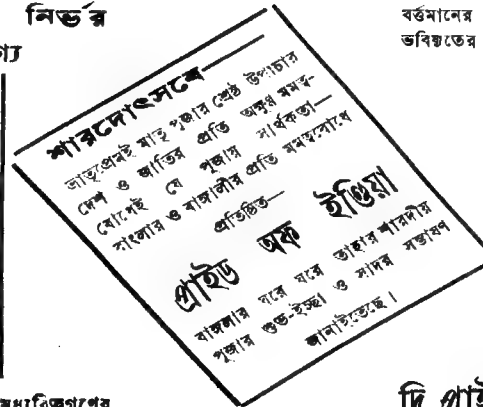 নির্ভর
বর্ত্তমানের
ভবিষ্যতের
শারদোৎসবে—
ভ্রাতৃপ্রেমই মাতৃ পূজার শ্রেষ্ঠ উপাচার
দেশ ও জাতির প্রতি অক্ষুণ্ণ মমত্ব-
বোধেই যে পূজায় সার্থকতা—
বাংলার ও বাঙ্গালীর প্রতি মমত্ববোধে
প্রতিষ্ঠিত—
প্রাইড অফ ইণ্ডিয়া
বাঙ্গলার ঘরে ঘরে তাহার শারদীয়
পূজার শুভ-ইচ্ছা ও সাদর সম্ভাষণ
জানাইতেছে।
দি প্রাই